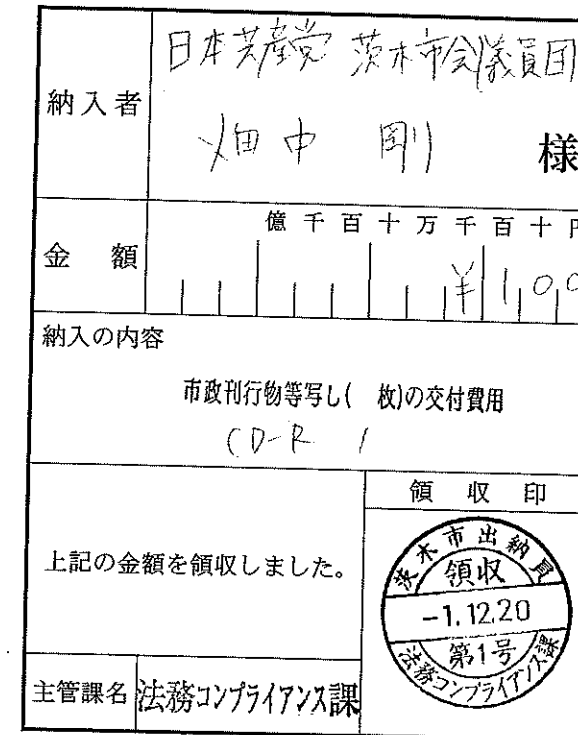 納入者
日本共産党 茨木市会議員団
畑中 剛 様
金額
億千百十万千百十円
¥100
納入の内容
市政刊行物等写し( 枚)の交付費用
CD-R 1
上記の金額を領収しました。
領収印
茨木市出納員
領収
-1.12.20
第1号
法務コンプライアンス課
主管課名 法務コンプライアンス課